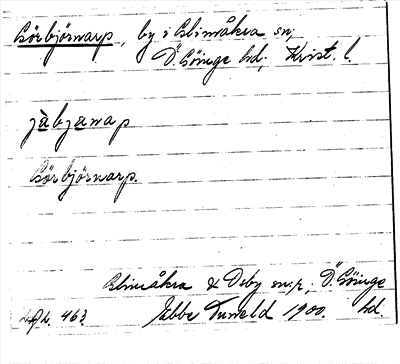 Görbjörnarp, by i Glimåkra sn;
Ö. Göinge hd; Krist. l.
jàbjænap
Görbjörnarp.
Glimåkra & Osby sn:r; Ö. Göinge
463. Ebbe Tuneld 1900. hd.